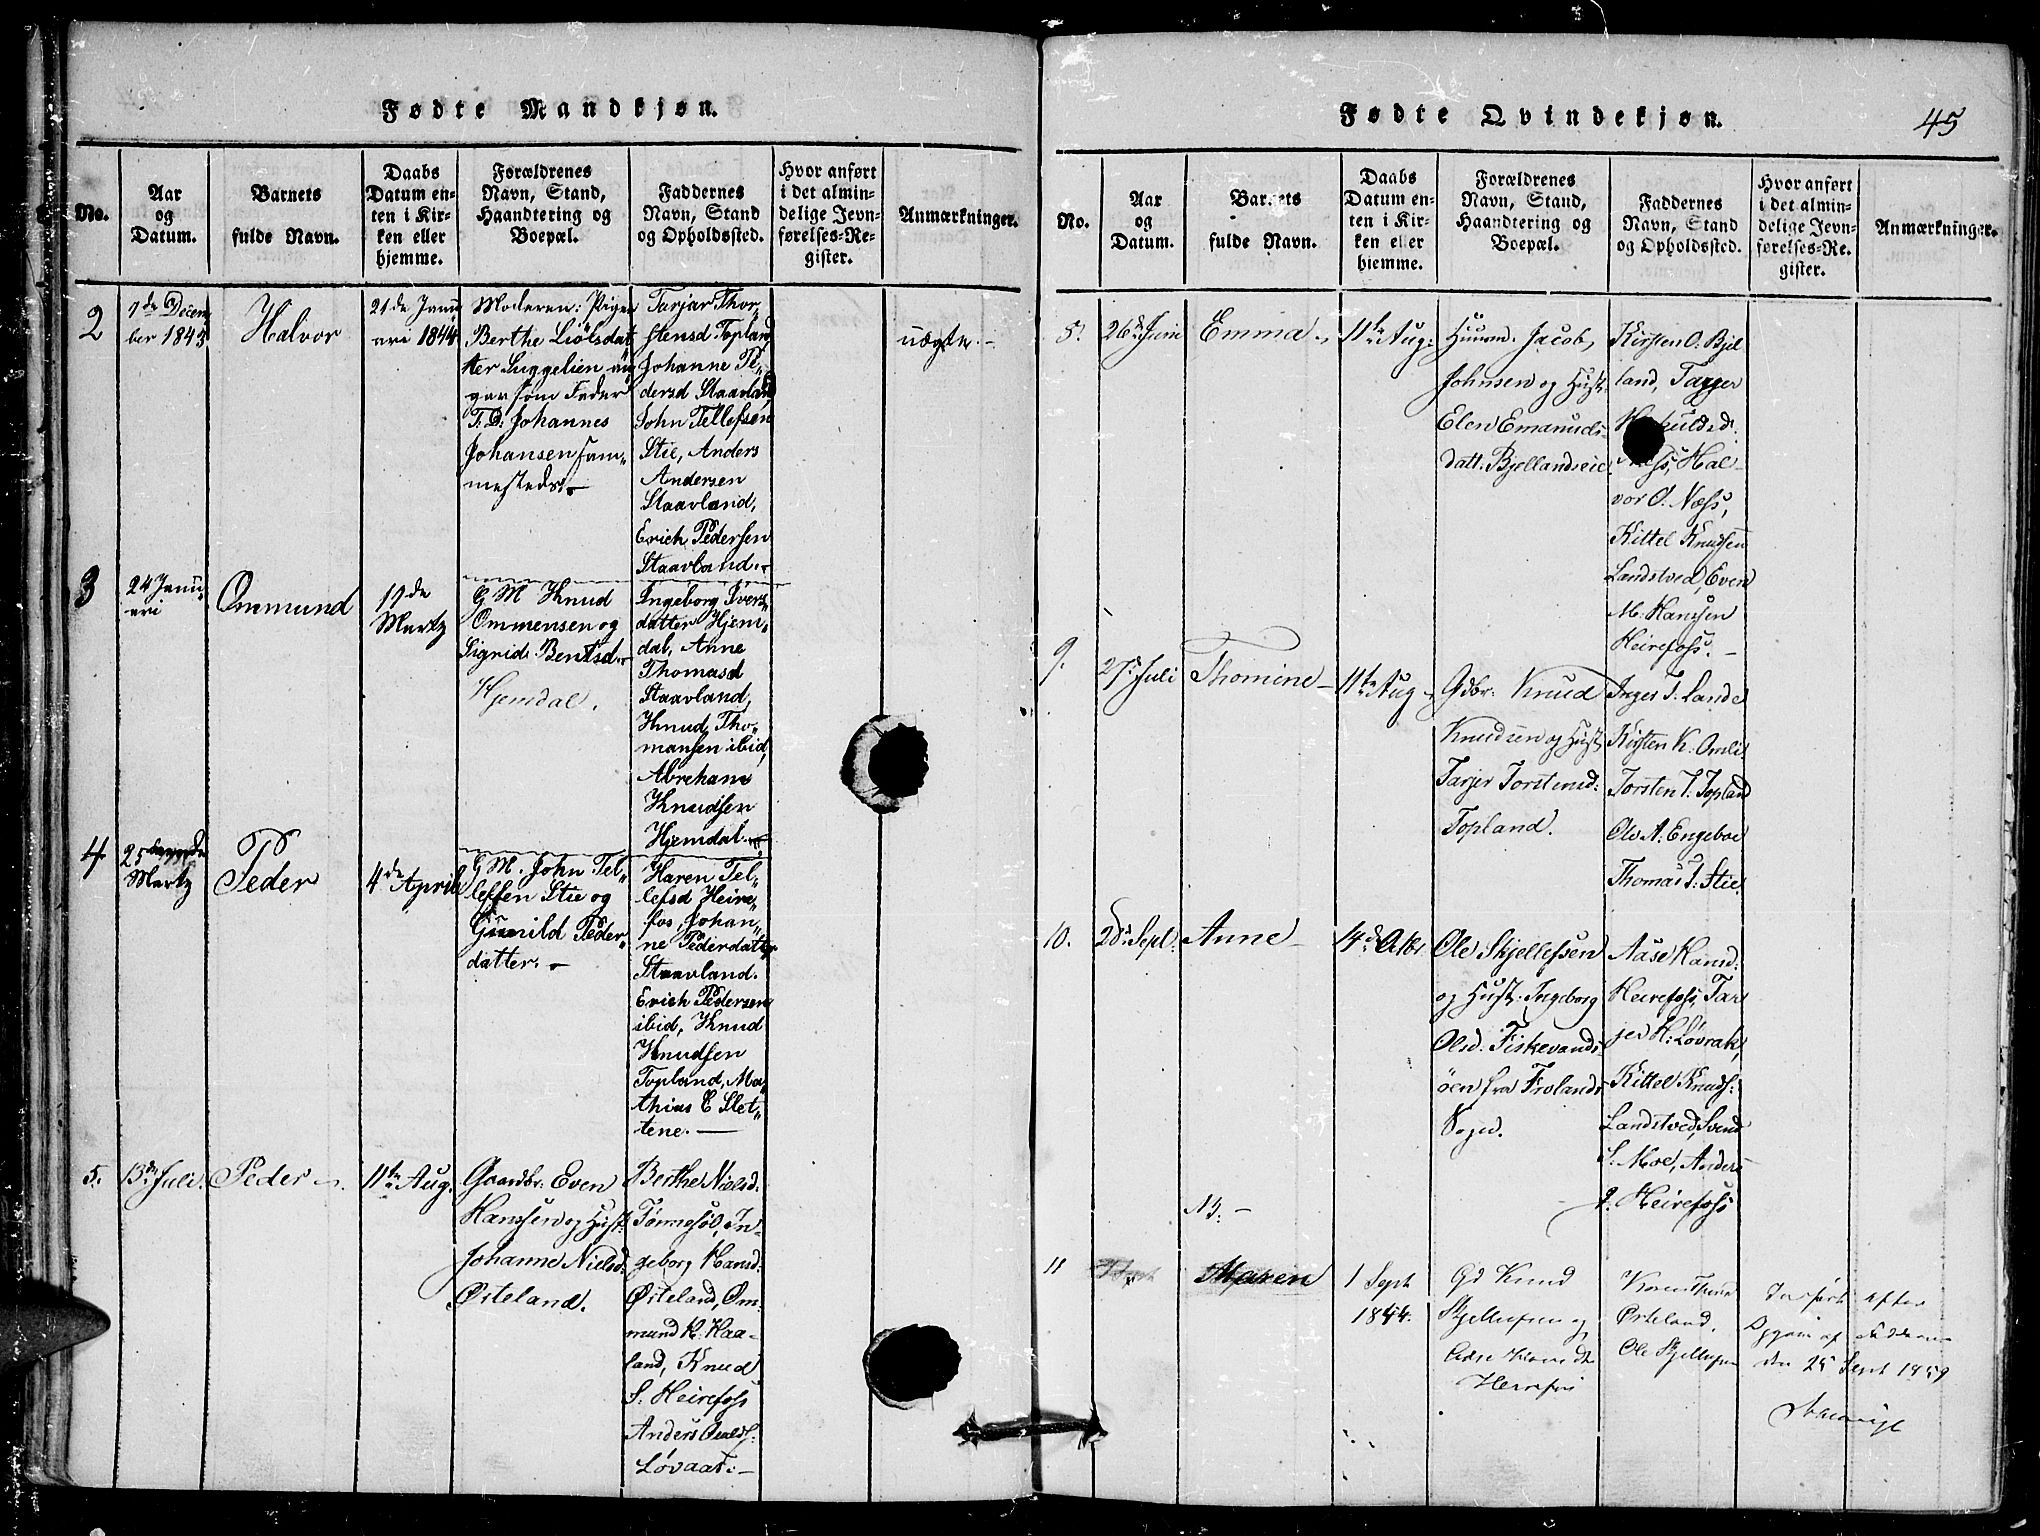 Fødte Mandkjøn.
No.
Aar
og
Datum.
Barnets
fulde Navn.
Daabs
Datum en-
ten i Kir-
ken eller
hjemme.
Forældrenes
Navn, Stand,
Haandtering og
Boepæl.
Faddernes
Navn, Stand
og Opholdssted.
Hvor anført
i det almin-
delige Jevn-
førelses-Re-
gister.
Anmærkninger.
2
7de Decem
ber 1843
Halvor
21de Janu
ari 1844
Moderen: Pigen
Berthe Liölsdat
ter
som Fader
Johannes
Johansen sam„
mesteds. –
Tarjar Thor„
stensd Topland
Johanne Pe„
dersd Staavland
John Tellefsen
Stie, Anders
Andersen
Staavland,
Erich Pedersen
Staavland. –
uægte. –
3
24 Janu„
ari
Ommund
11de
Martz
G M Knud
Ommensen og
Sigrid Bentsd. –
Hjemdal.
Ingeborg Ivers„
datter Hjem„
dal, Anne
Thomasd
Staavland,
Knud Tho„
mansen ibid,
Abreham
Knudsen
Hjemdal. –
4
25
Martz
Peder
4de April
G M. John Tel„
lefsen Stie og
Gunild Peder„
datter. –
Karen Tel„
lefsd Heire„
fos, Johan„
ne Pederdatter
Staavland.
Erich Pedersen
ibid, Knud
Knudsen
Topland, Ma„
thias E Slet„
tene. –
5.
13de Juli.
Peder –.
11te Aug.
Gaardbr. Even
Hanssen og Hust.
Johanne Nielsd.
Østeland.
Berthe Nielsd.
Tønnesöl, In-
geborg Hansd.
Østeland, Om-
mund K. Haa-
land, Knud
S. Heirefoss
Anders
Fødte Qvindekjøn.
45
No.
Aar
og
Datum.
Barnets
fulde Navn.
Daabs
Datum en-
ten i Kir-
ken eller
hjemme.
Forældrenes
Navn, Stand,
Haandtering og
Boepæl.
Faddernes
Navn, Stand
og Opholdssted.
Hvor anført
i det almin-
delige Jevn-
førelses-Re-
gister.
Anmærkninger.
26de Juni
Emma –
11te Aug.
Huusmd. Jacob
Johnsen og Hust.
Elen Emanuels-
datt. Bjellandseie
Kirsten O. Bjel
land, Tarjer
Næss, Hal-
vor O. Næss,
Kittel Knudsen
Landstved, Even
M. Hanssen
Heirefoss. –
9.
27de Juli
Thomine –
11te Aug –
Gdbr. Knud
Knudsen og Hust.
Tarjer Torstensd.
Topland.
Inger T. Lande
Kirsten K. Omli
Torsten T. Topland
Ole A. Engeboe
Thomas T. Stie.
10.
28de Sept.
Anne –
14de Octbr.
Ole Skjellefsen
og Hust. Ingeborg
Olsd. Fiskevands-
øen fra Frolands
Sogn.
Aase Hansd.
Heirefoss, Tar
jer H. Løvrak,
Kittel Knuds.
Landstved, Svend
S. Moe, Anders
Heirefoss
11
Maren
1 Sept
1844.
Gd Knud
Skjellefsen og
Heirefos
Østeland.
Ole Skjellefsen
efter
Opgave af
den 25 Sept 1859